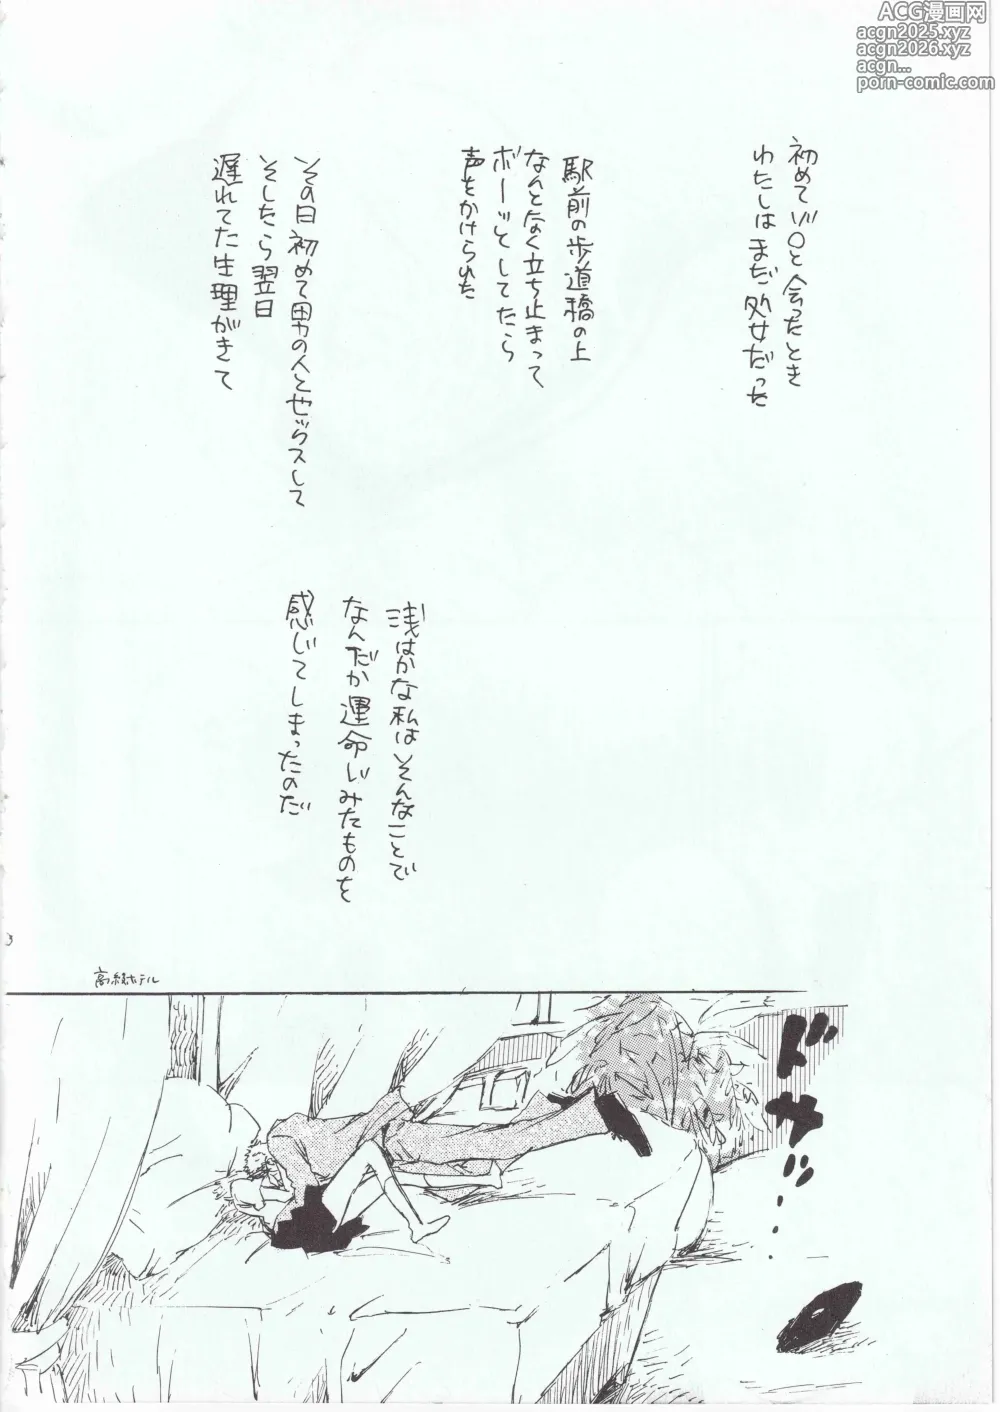 ACG漫画网
acgn2025.xyz
acgn2026.xyz
acgn...
porn-comic.com
初めてゾ〇と会ったとき
わたしはまだ処女だった
駅前の歩道橋の上
なんとなく立ち止まって
ボーッとしてたら
声をかけられた
その日初めて男の人とセックスして
そしたら翌日
遅れてた生理がきて
浅はかな私はそんなことで
なんだか運命じみたものを
感じてしまったのだ
高級ホテル
ドサッ…